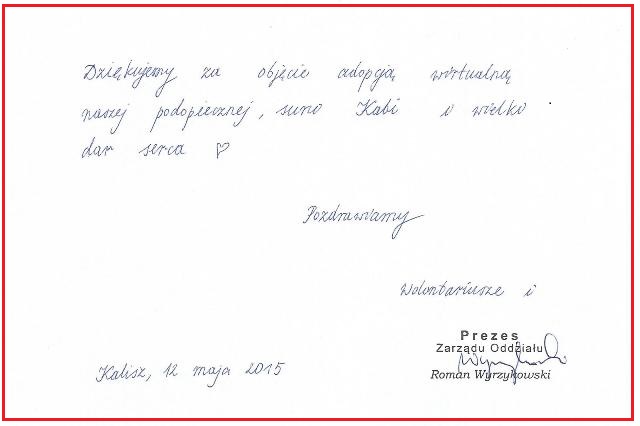 Dziękujemy za objęcie adopcją wirtualną
naszej podopiecznej, suno Kabi o wielko
dar serca ♡
Pozdrawiamy
Wolontariusze i
Prezes
Zarządu Oddziału
Roman Wyrzykowski
Kalisz, 12 maja 2015